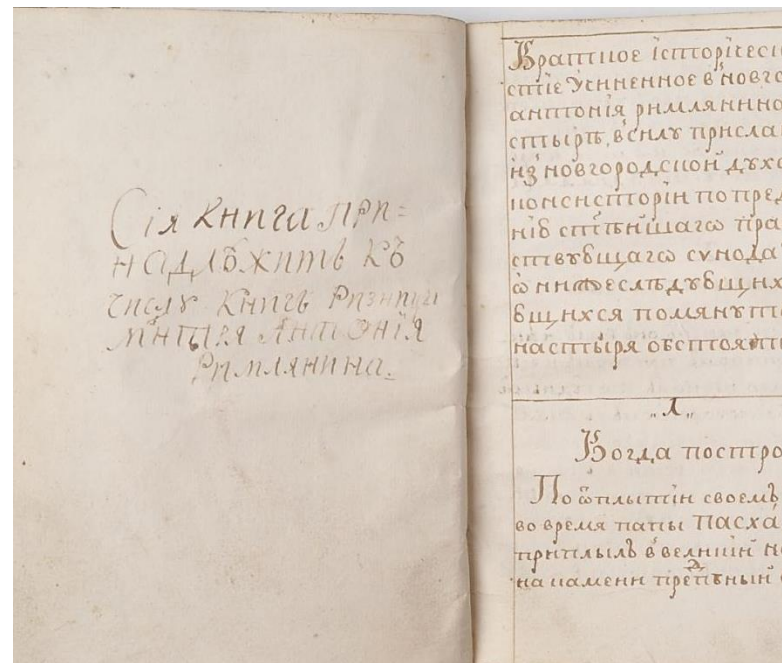 Сія книга при=
надлѣжитъ къ
числу книгъ ризницы
Антонія
Римлянина.
Краткое історіческ
стіе учиненное в новго
антонія римлянино
стырѣ, в силу присла
из новгородской духо
консисторіи по пред
нію ст҃ѣйшагѡ пра
ствующагѡ сѵнода
ѡ нижеслѣдующих
ющихся помянуто
настыря обстоят
„1„
Когда постро
По ѿплытіи своемъ
во время папы Пасха
приплылъ в великій н
на камени преп҃бный